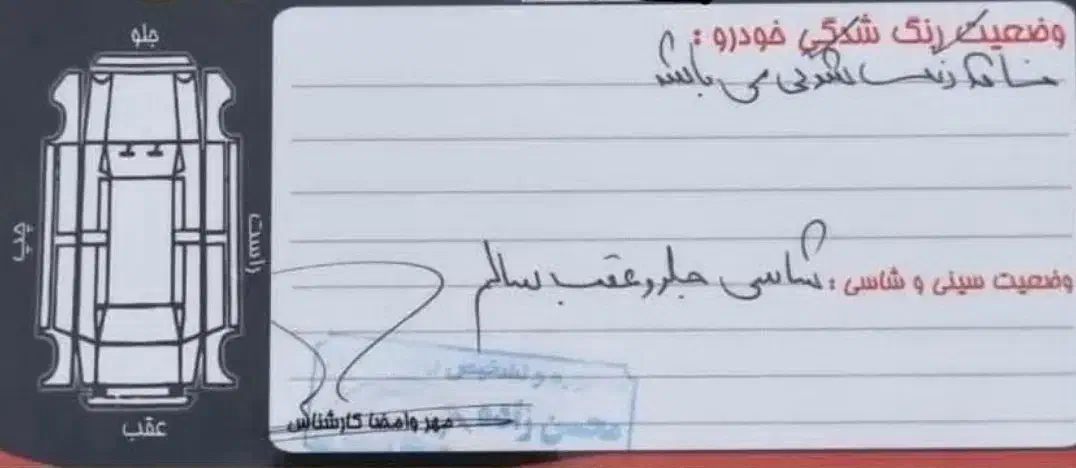 جلو
چپ
راست
عقب
وضعیت رنگ شدگی خودرو :
فاقد رنگ شدگی می باشد
وضعیت سینی و شاسی : شاسی جلو و عقب سالم
و تشخیص
مهر و امضا کارشناس
محسن